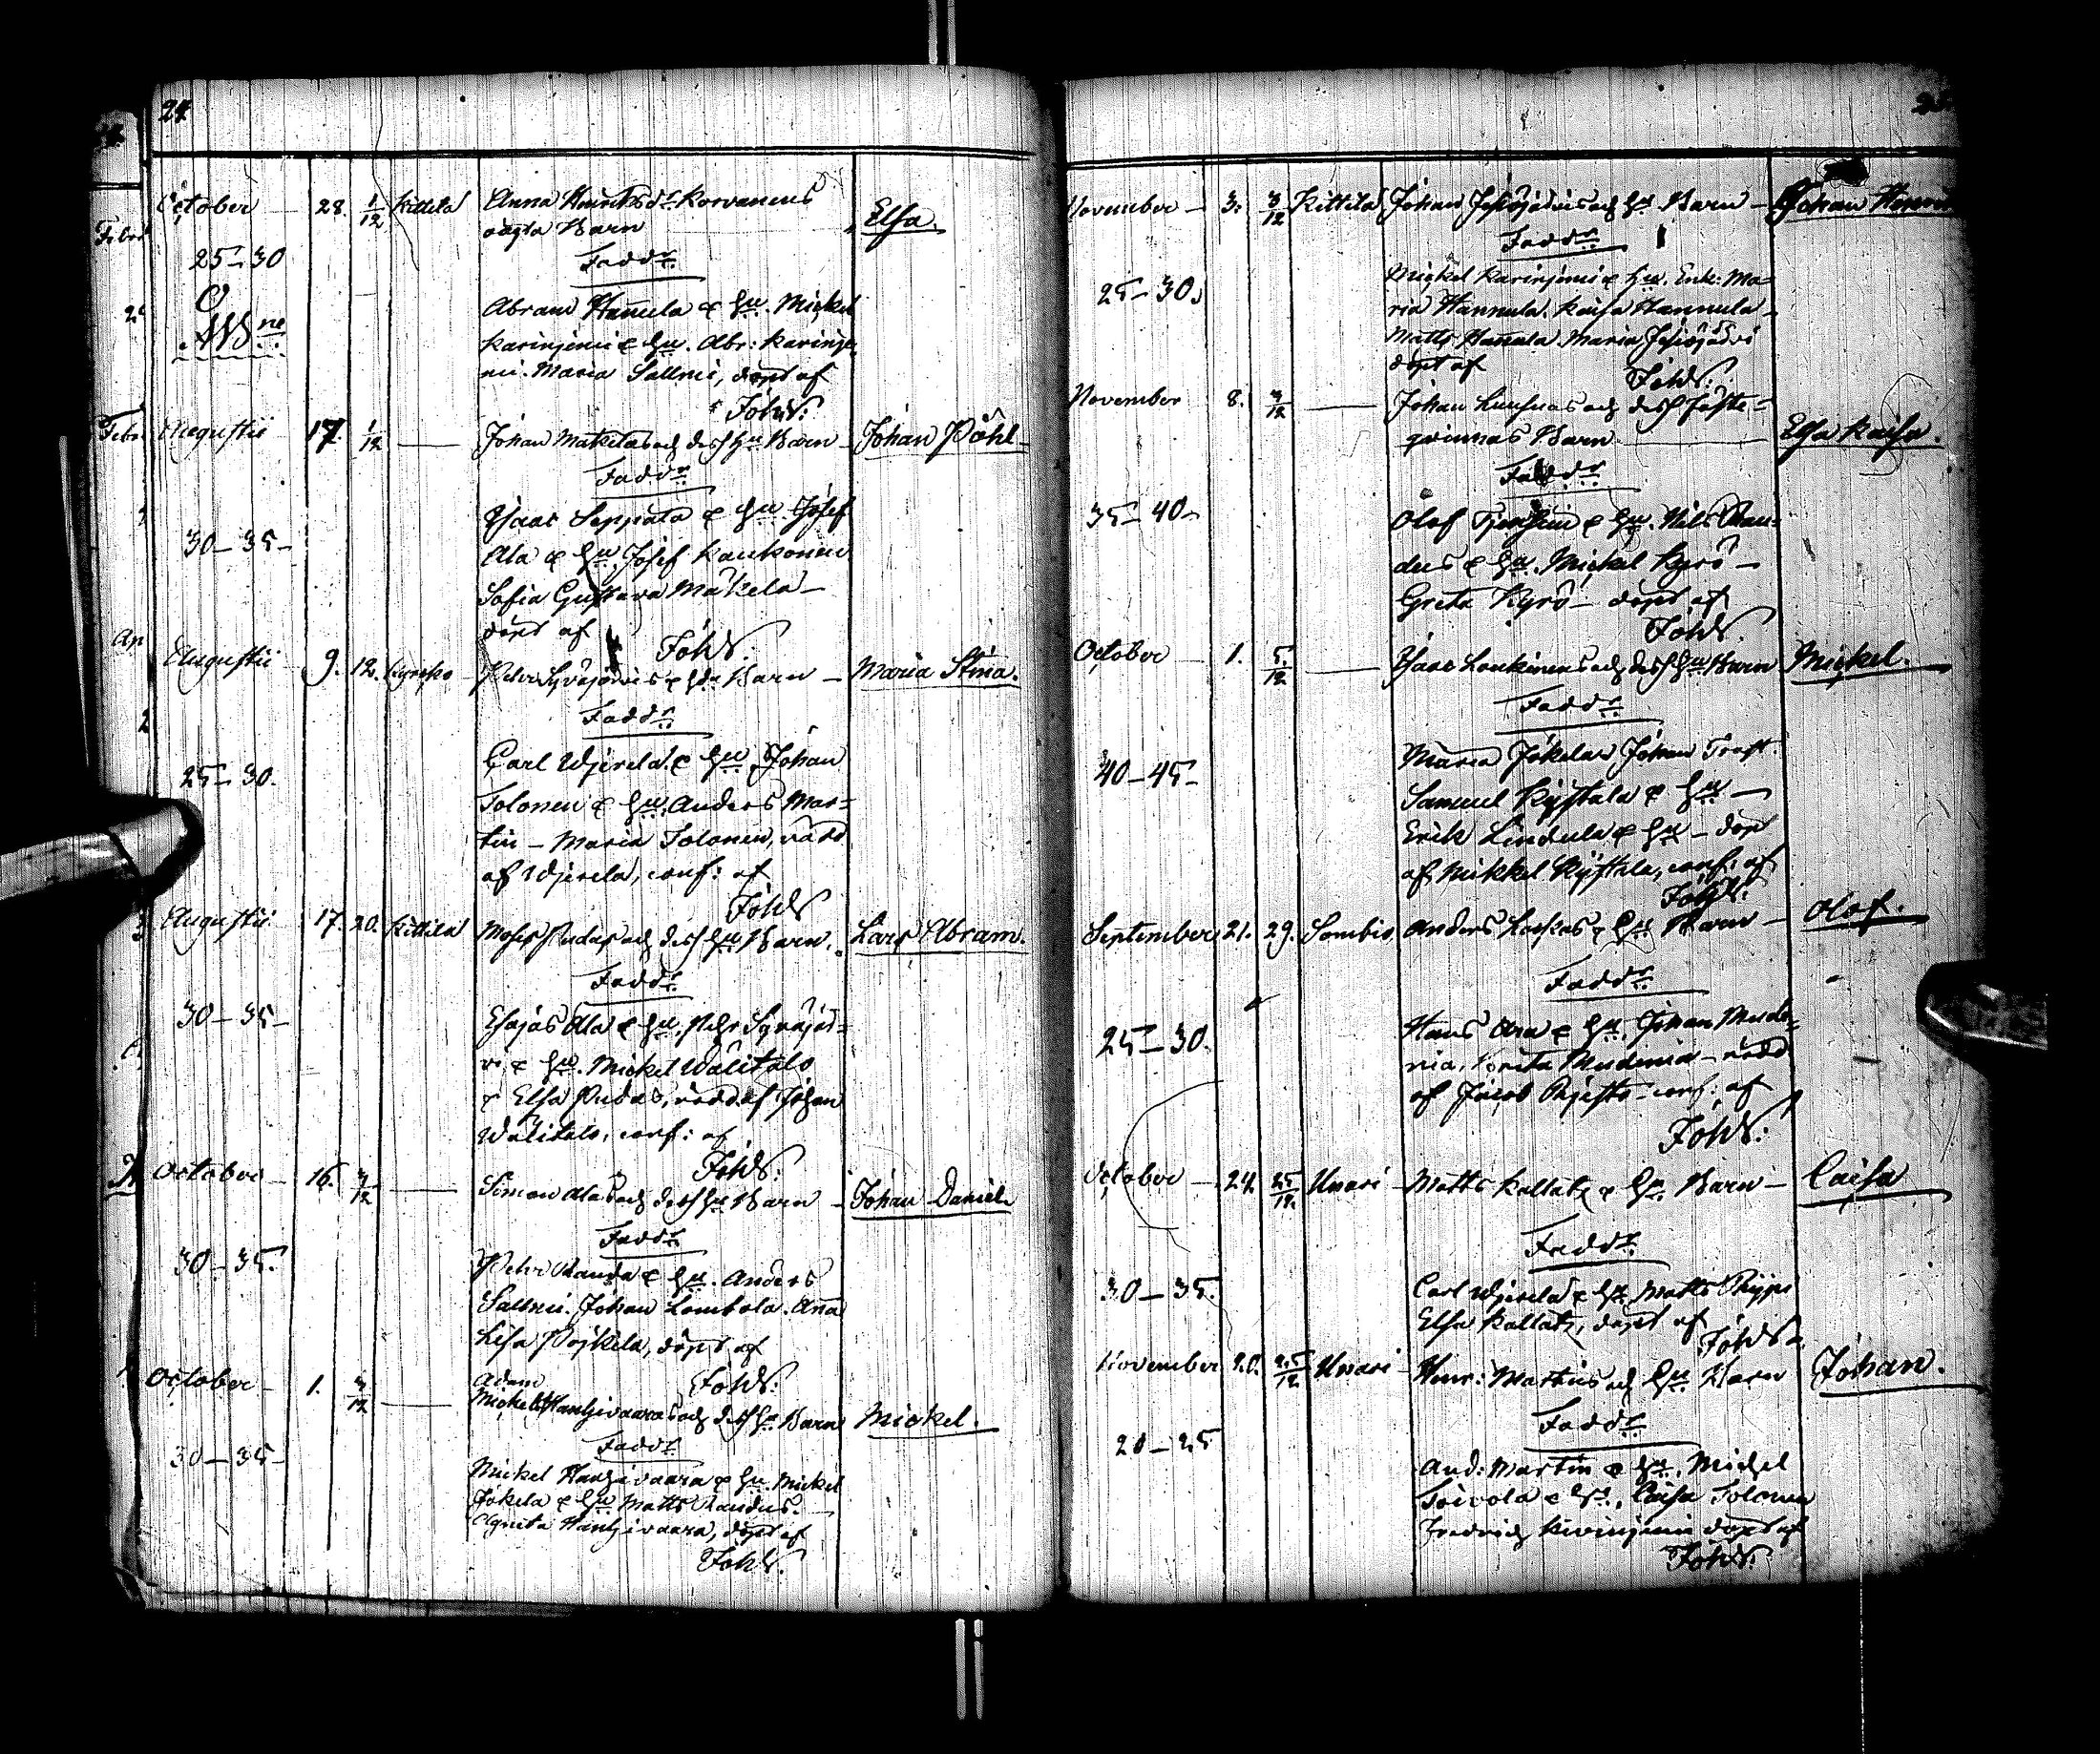 24
October 28. 1/12 Kittila Anna Henriksdr Korvanens
oägta Barn Elsa.
25-30 Faddr
Abram Hannula & hu. Mickel
Karinjemi & hu. Abr: Karinje
mi. Maria Salmi, döpt af
Föhls:
Augustii 17. 1/12 Johan Mäkelas och dess hu Barn Johan Pehl
Faddr
30-35 Isaac Seppala & hu Josef
Ala & hu. Josef Kaukonen
Sofia Gustava Mäkela
döpt af
Föhls:
Augustii 9. 12. Peter Syväjervis & hu Barn Maria Stina.
Faddr
25-30. Carl Wjirela & hu Johan
Tolonen & hu. Anders Mar=
tin - Maria Tolonen, nödd
af Wjirela, conf: af
Föhls
Augustii 17. 20. Kittila Moses Pudas och dess hu Barn. Lars Abram.
Faddr
30-35 Esajas Ala & hu. Pehr Syväjer=
vi & hu. Mickel Walitalo
& Elsa Pudas, nödd af Johan
Walitalo, conf: af
Föhls:
October 16. 3/12 Simon Alas och dess hu Barn Johan Daniel
Faddr
30-35. Peter Rauda & hu. Anders
Salmi. Johan Lombola. Anna
Lisa Pojkela, döpt af
Föhls:
October 1. 3/12 Adam
Mickel Hanhivaaras och dess hu Barn Mickel.
Faddr
30-35 Mickel Hanhivaara & hu Mickel
Jokela & hu Matts Raudus.
Agneta Hanhivaara, döpt af
Föhls:
25
November 3. 3/12 Kittila Johan Jesiöjärvis och hu Barn Johan Henrik
Faddr
25-30. Mickel Karinjemi & hu. Enk: Ma=
ria Hannula. Kaisa Hannula
Matts Hannula. Maria Jesiöjärvi
döpt af
Föhls:
November 8. 3/12 Johan Luusuas och dess Fäste=
qwinnas Barn Elsa Kaisa.
Faddr
35-40 Olof & hu. Nils Rau=
dus & hu. Mickel Kyrö
Greta Kyrö - döpt af
Föhls.
October 1. 5/12 Isaac Lonkinens och dess hu Barn Mickel.
Faddr
40-45 Maria Jokela Johan Trast
Samuel Kyistala & hu
Erik Lindula & hu - döpt
af Mikkel Kyistala, conf: af
Föhls:
September 21. 29. Sombio Anders & hu Barn Olof.
Faddr
25-30. Hans Ara & hu. Johan Mude=
nia. Greta Mudenia - nödd
af Jacob - conf: af
Föhls:
October 24. 25/12 Unari Matts Kallatz & hu. Barn Caisa
Faddr
30-35. Carl Wjirela & hu. Matts
Elsa Kallatz, döpt af
Föhls.
November 20. 25/12 Unari Henr: Martins och hu Barn Johan.
Faddr
20-25 And: Martin & hu. Michel
Toivola & hu, Caisa Tolonen
Fredrich döpt af
Föhls.